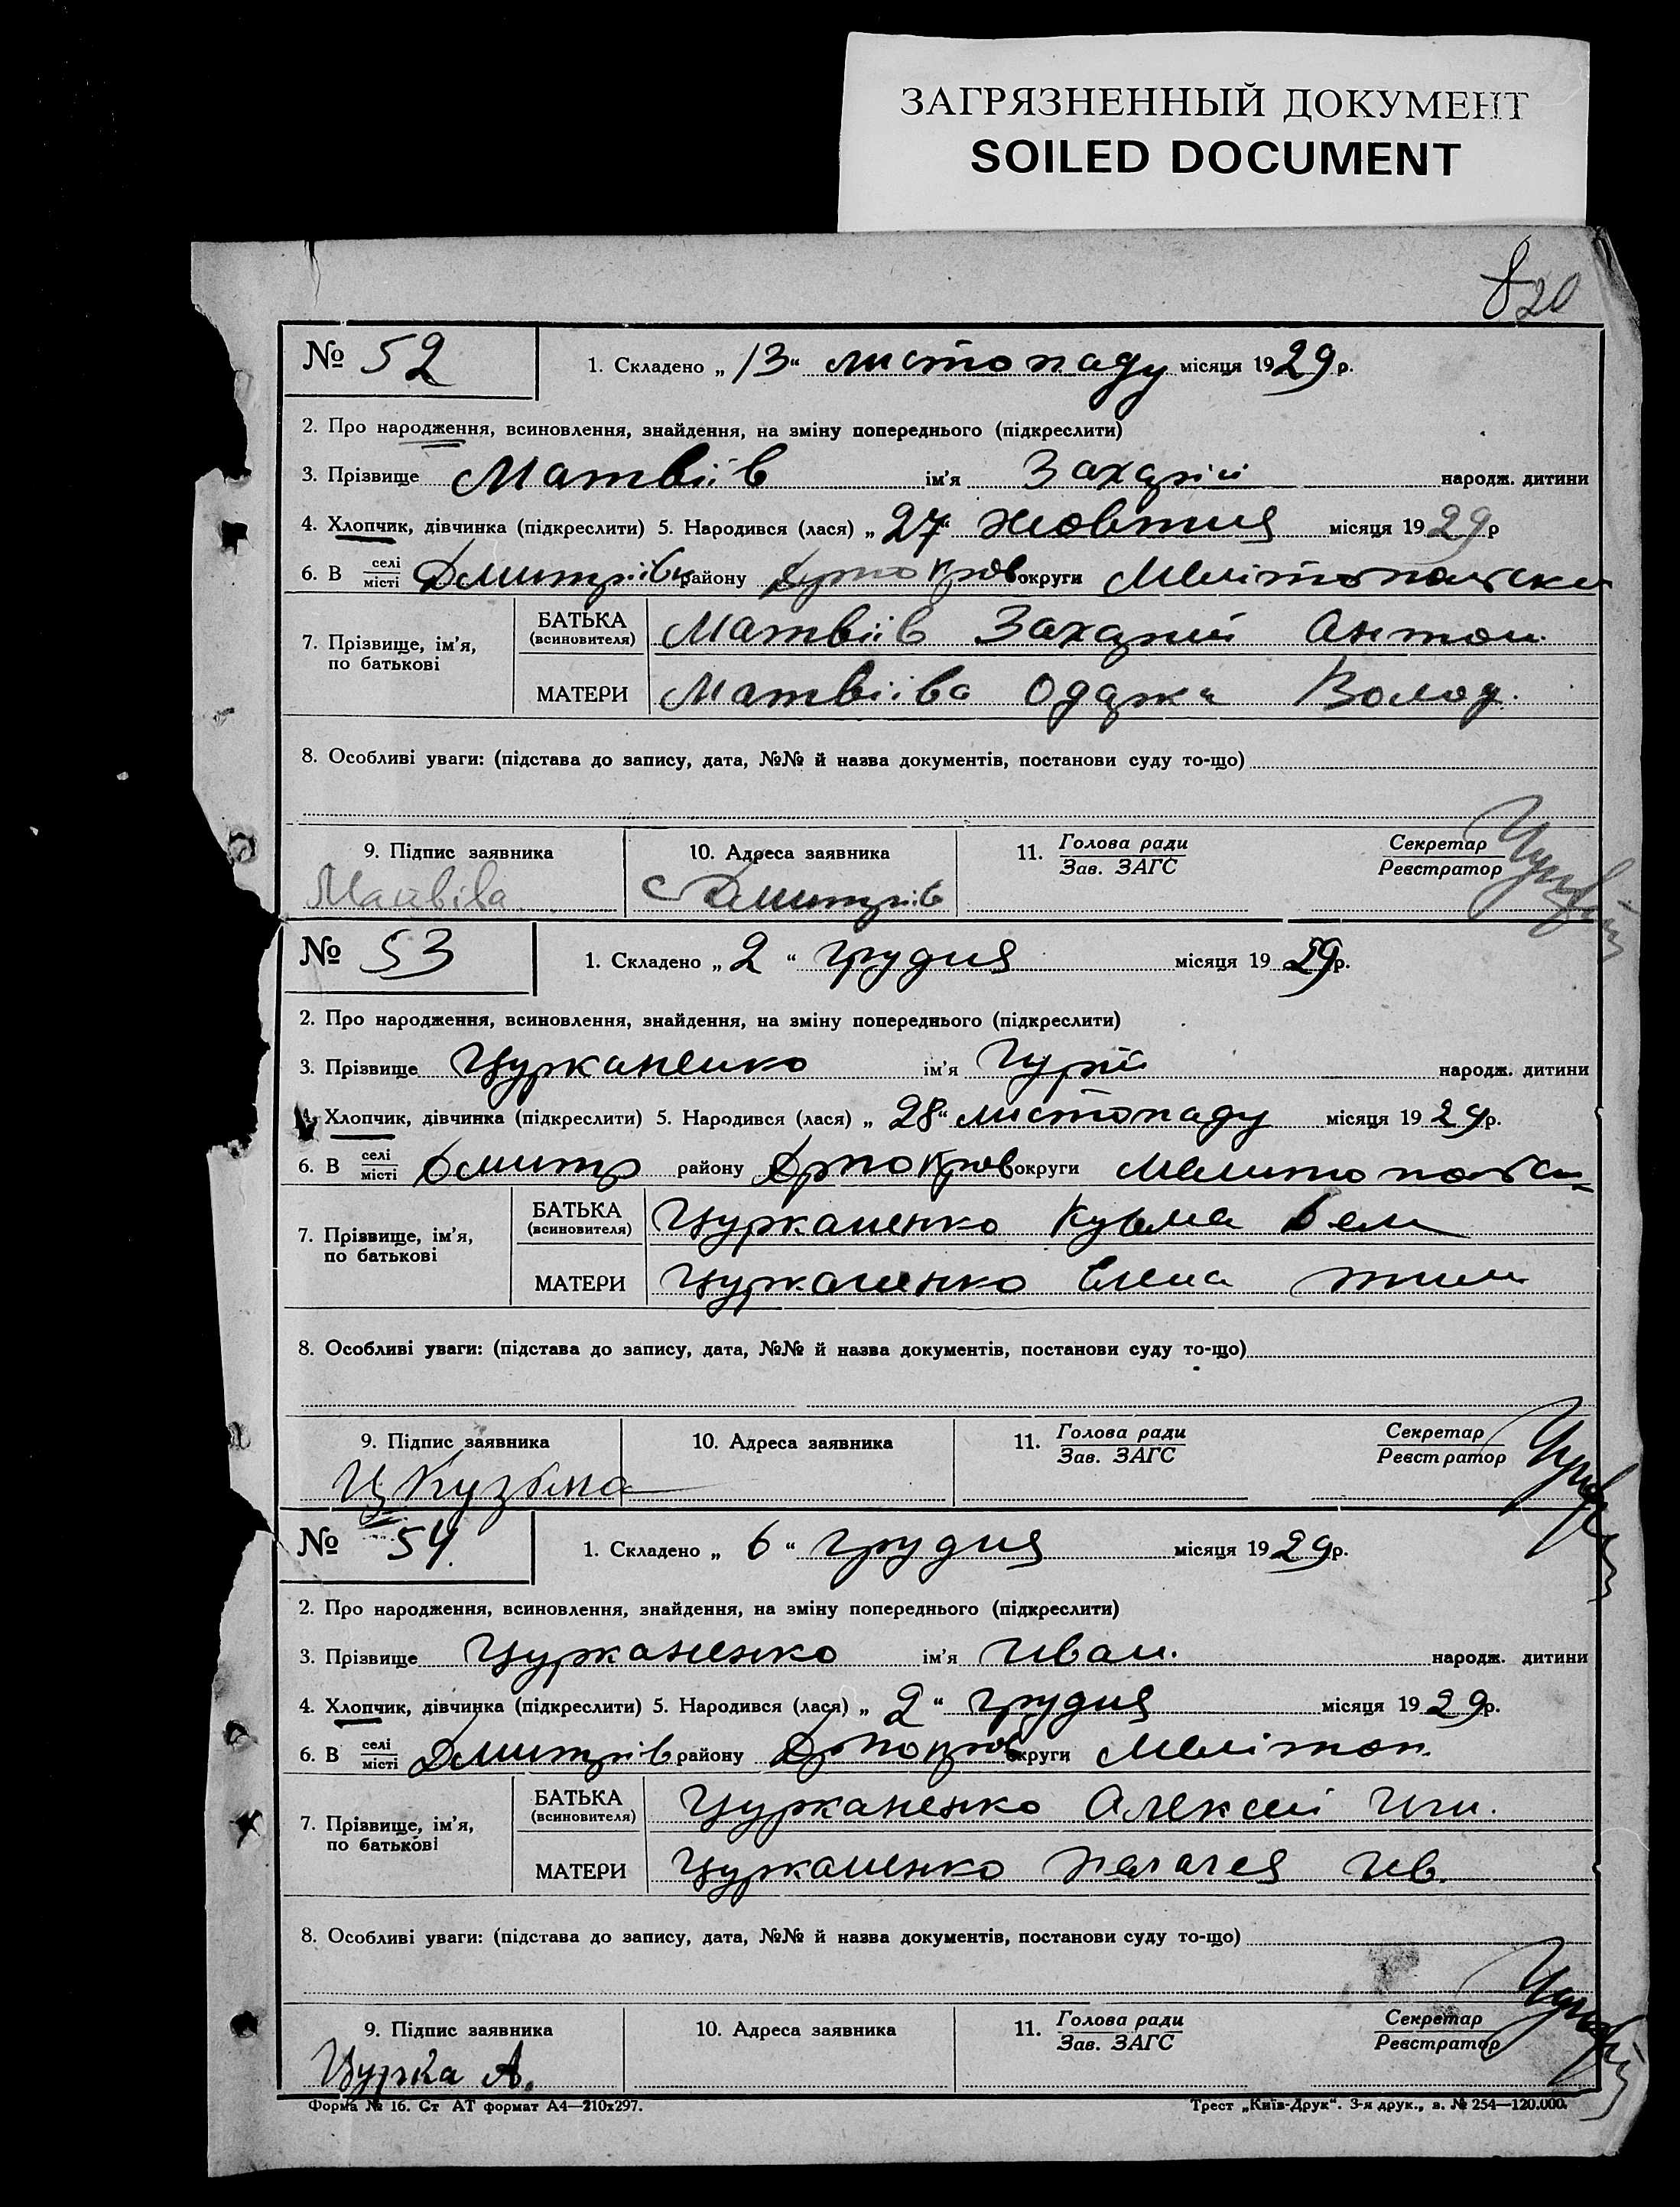 ЗАГРЯЗНЕННЫЙ ДОКУМЕНТ
SOILED DOCUMENT
820
№ 52 1. Складено „13“ листопаду місяця 1929 р.
2. Про народження, всиновлення, знайдення, на зміну попереднього (підкреслити)
3. Прізвище Матвіїв ім'я Захарій народж. дитини
4. Хлопчик, дівчинка (підкреслити) 5. Народився (лася) „27“ жовтня місяця 1929 р
6. В селі/місті Дмитрівк району округи Мелітопольски
7. Прізвище, ім'я, по батькові БАТЬКА (всиновителя) Матвіїв Захарий Антон
МАТЕРИ Матвіїва Одарка Волод.
8. Особливі уваги: (підстава до запису, дата, №№ й назва документів, постанови суду то-що)
9. Підпис заявника 10. Адреса заявника 11. Голова ради/Зав. ЗАГС Секретар/Реєстратор
Матвіва С Дмитрів
№ 53 1. Складено „2“ грудня місяця 1929 р.
2. Про народження, всиновлення, знайдення, на зміну попереднього (підкреслити)
3. Прізвище Цурканенко ім'я Гурій народж. дитини
4. Хлопчик, дівчинка (підкреслити) 5. Народився (лася) „28“ листопаду місяця 1929 р.
6. В селі/місті Дмитр району округи
7. Прізвище, ім'я, по батькові БАТЬКА (всиновителя) Цурканенко Кузьма
МАТЕРИ Цурканенко Елена
8. Особливі уваги: (підстава до запису, дата, №№ й назва документів, постанови суду то-що)
9. Підпис заявника 10. Адреса заявника 11. Голова ради/Зав. ЗАГС Секретар/Реєстратор
Ц Кузьма
№ 54. 1. Складено „6“ грудня місяця 1929 р.
2. Про народження, всиновлення, знайдення, на зміну попереднього (підкреслити)
3. Прізвище Цурканенко ім'я Иван. народж. дитини
4. Хлопчик, дівчинка (підкреслити) 5. Народився (лася) „2“ грудня місяця 1929 р.
6. В селі/місті Дмитрів району округи Мелітоп.
7. Прізвище, ім'я, по батькові БАТЬКА (всиновителя) Цурканенко Алексей
МАТЕРИ Цурканенко Пелагея Ив.
8. Особливі уваги: (підстава до запису, дата, №№ й назва документів, постанови суду то-що)
9. Підпис заявника 10. Адреса заявника 11. Голова ради/Зав. ЗАГС Секретар/Реєстратор
Цурка А.
Форма № 16. Ст АТ формат А4—210х297. Трест „Київ-Друк“. 3-я друк., в. № 254—120.000.